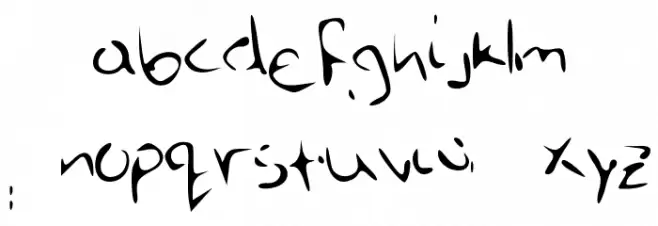 abcdefghijklm
nopqrstuvw xyz